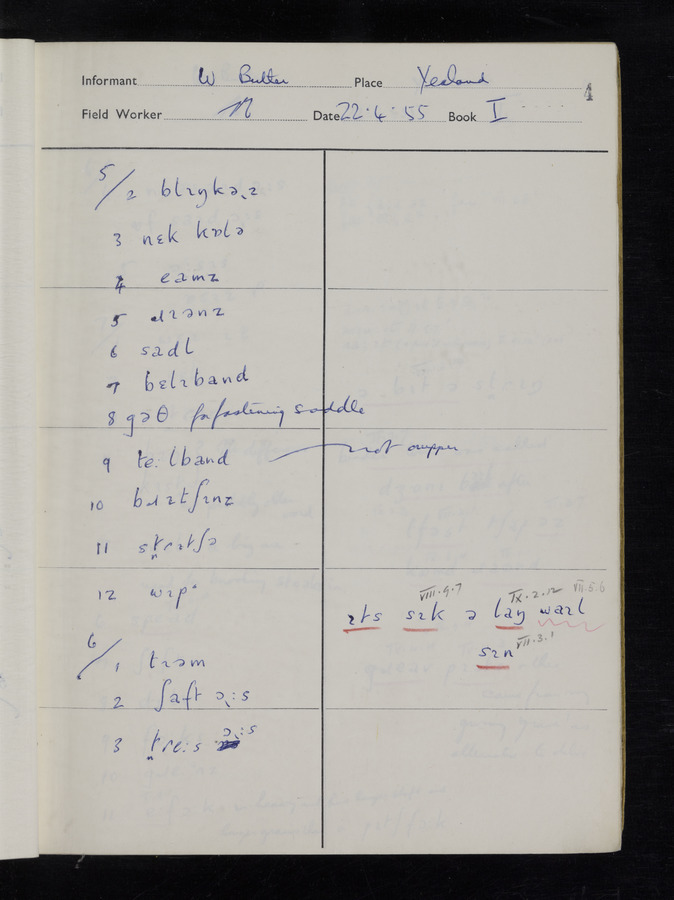 Informant W Butler Place Yealand 4
Field Worker N Date 22.4.55 Book I
5/2 blɪŋkə˞z
3 nɛk kɒlə
4 eamz
5 ɹɪənz
6 sadl
7 bɛlɪband
8 gəθ for fastening saddle
9 te:lband not crupper
10 bɹɪtʃɪnz
11 stɹɛtʃə
12 wɪp
VIII.9.7 IX.2.12 VII.5.6
ɪts sɪk ə laŋ waɪl
sɪn VII.3.1
6/1 tɪəm
2 ʃaft ɔ:s
3 tɾe:s ɔ:s